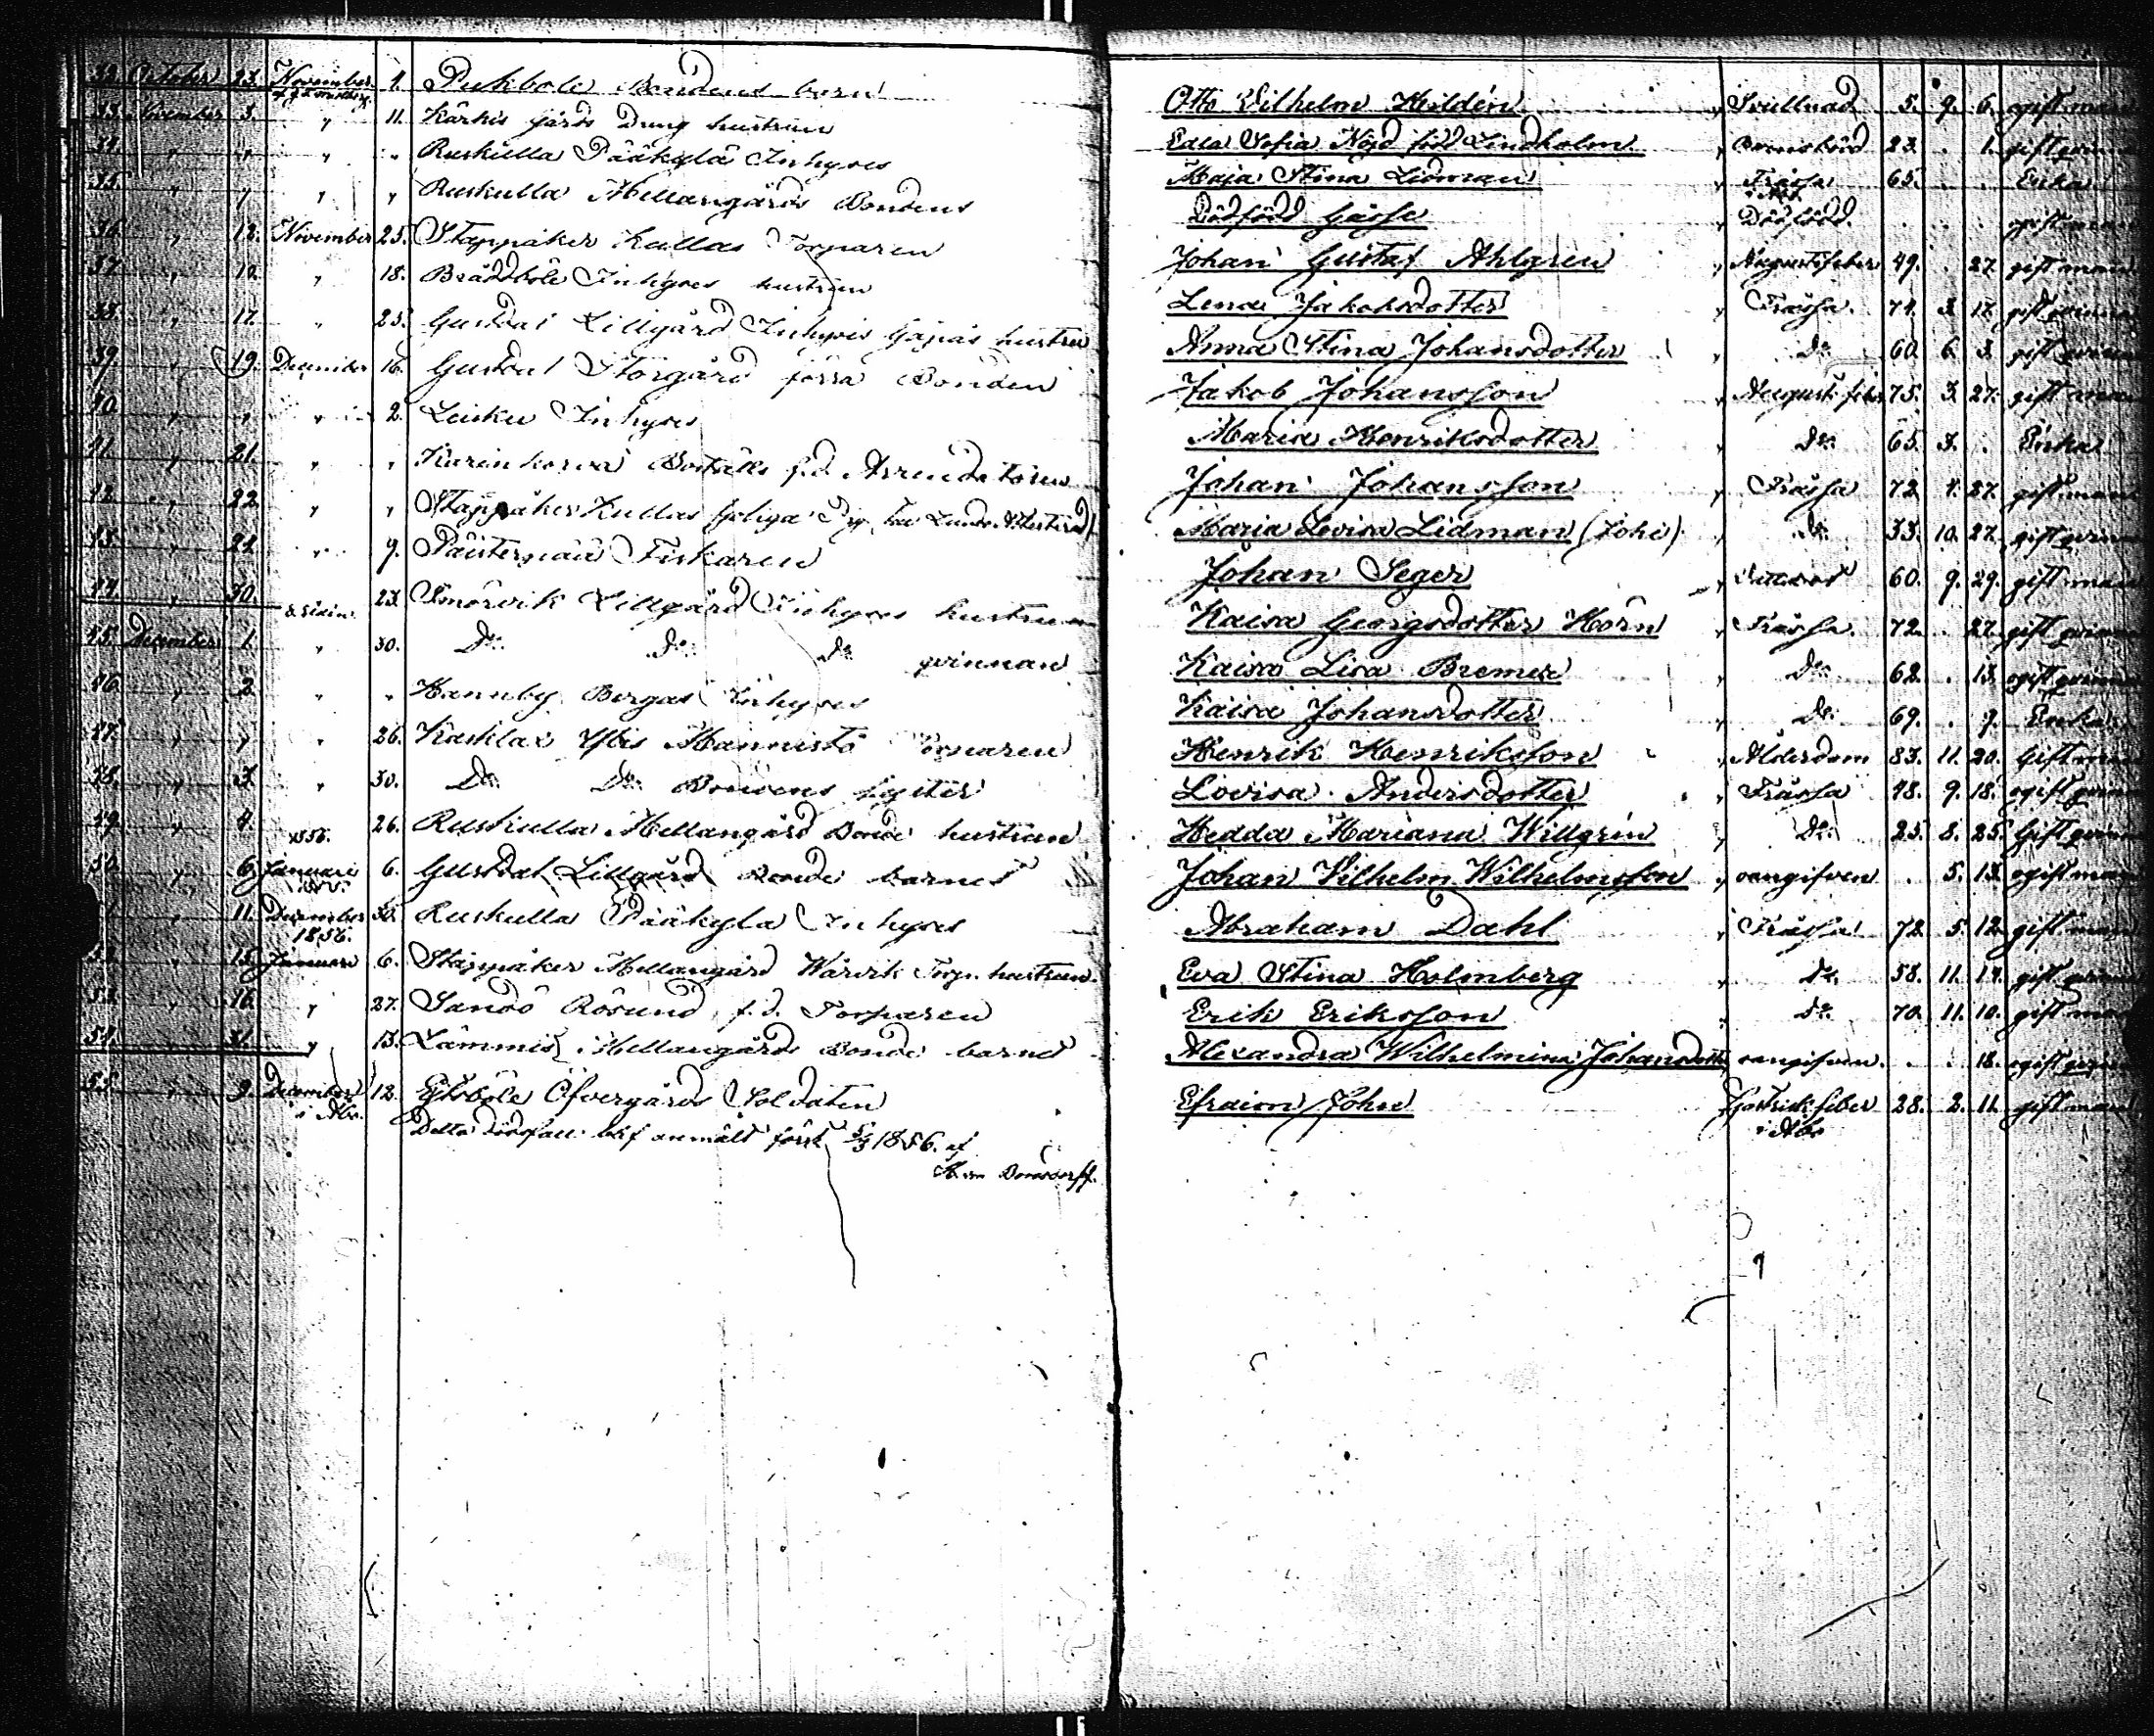 32. October 23. November 4. Pukbole Bondens barn Otto Vilhelm Heldén " Svullnad 5. 9. 6. ogift man
33. November 3. " 11. Kärkis gårds Dreng hustrun Edla Sofia Nöjd född Lindholm " Barnsbörd 23. . 1. gift qvinna
34. " " " " Ruskulla Pääkylä Inhyses Maja Stina Lidman " Frässa 65. . . Enka
35. " " " " Ruskulla Mellangårds Bondens Dödfödd Gåsse " Dödfödd . . . ogift man
36. " 12. November 25. Stappaker Kullas Torparen Johan Gustaf Ahlgren " Augustifeber 49. . 27. gift man
37. " 12. " 18. Bräddböle Inhyses hustrun Lena Jakobsdotter " Frässa 74. 3. 17. gift qvinna
38. " 17. " 25. Gustdal Lillgård Inhyses hustru Anna Stina Johansdotter " Do 60. 6. 3. gift qvinna
39. " 19. December 16. Gustdal Storgård förra Bonden Jakob Johansson " Augusti feber 75. 3. 27. gift man
40. " " " 2. Leisku Inhyses Maria Henriksdotter " Do 65. 3. . Enka
41. " 21. " " Karinkorva Boställs f.d. Arrendatorn Johan Johansson " Frässa 72. 4. 27. gift man
42. " 22. " " Stappaker Kullas Maria Lovisa Lidman (Johe) " Do 33. 10. 27. gift qvinna
43. " 24. " 9. Päisterpää Fiskaren Johan Seger " 60. 9. 29. gift man
44. " 30. 23. Smörvik Lillgård Inhyses hustrun Kaisa Georgsdotter Horn " Frässa 72. . 27. gift qvinna
45. December 1. " 30. Do Do Do qvinnan Kaisa Lisa Bremer " Do 62. . 13. ogift qvinna
46. " 2. " " Hannby Bergas Inhyses Kaisa Johansdotter " Do 69. . 7. Enka
47. " " " 26. Kasklax Ylis Mannistö Torparen Henrik Henriksson " Ålderdom 83. 11. 20. Gift man
48. " 3. " 30. Do Do Bondens syster Lovisa Andersdotter " Frässa 48. 9. 18. ogift qvinna
49. " 4. " 26. Ruskulla Mellangård Bonde hustrun Hedda Mariana Willgrén " Do 25. 8. 25. Gift qvinna
1856.
50. " 6. Januari 6. Gustdal Lillgård Bonde barnet Johan Vilhelm Wilhelmsson " oangifven . 5. 13. ogift man
" 11. December 30. Ruskulla Pääkyla Inhyses Abraham Dahl " Frässa 72. 5. 12. gift man
1856.
52. " 15. Januari 6. Stappaker Mellangård Wårvik Torp. hustrun Eva Stina Holmberg " Do 58. 11. 17. gift qvinna
53. " 16. " 27. Sandö Rösund f.d. Torparen Erik Eriksson " Do 70. 11. 10. gift man
54. " 31. " 13. Lammis Mellangårds Bonde barnet Alexandra Wilhelmina Johansdotter oangifven . . 18. ogift qvinna
55. " 9. December 12. Eftsböle Öfvergårds Soldaten Efraim Johne Gastrisk feber 28. 2. 11. gift man
i Åbo i Åbo
Detta dödsfall blef anmäldt först 5/3 1856. af
Bonsdorff.